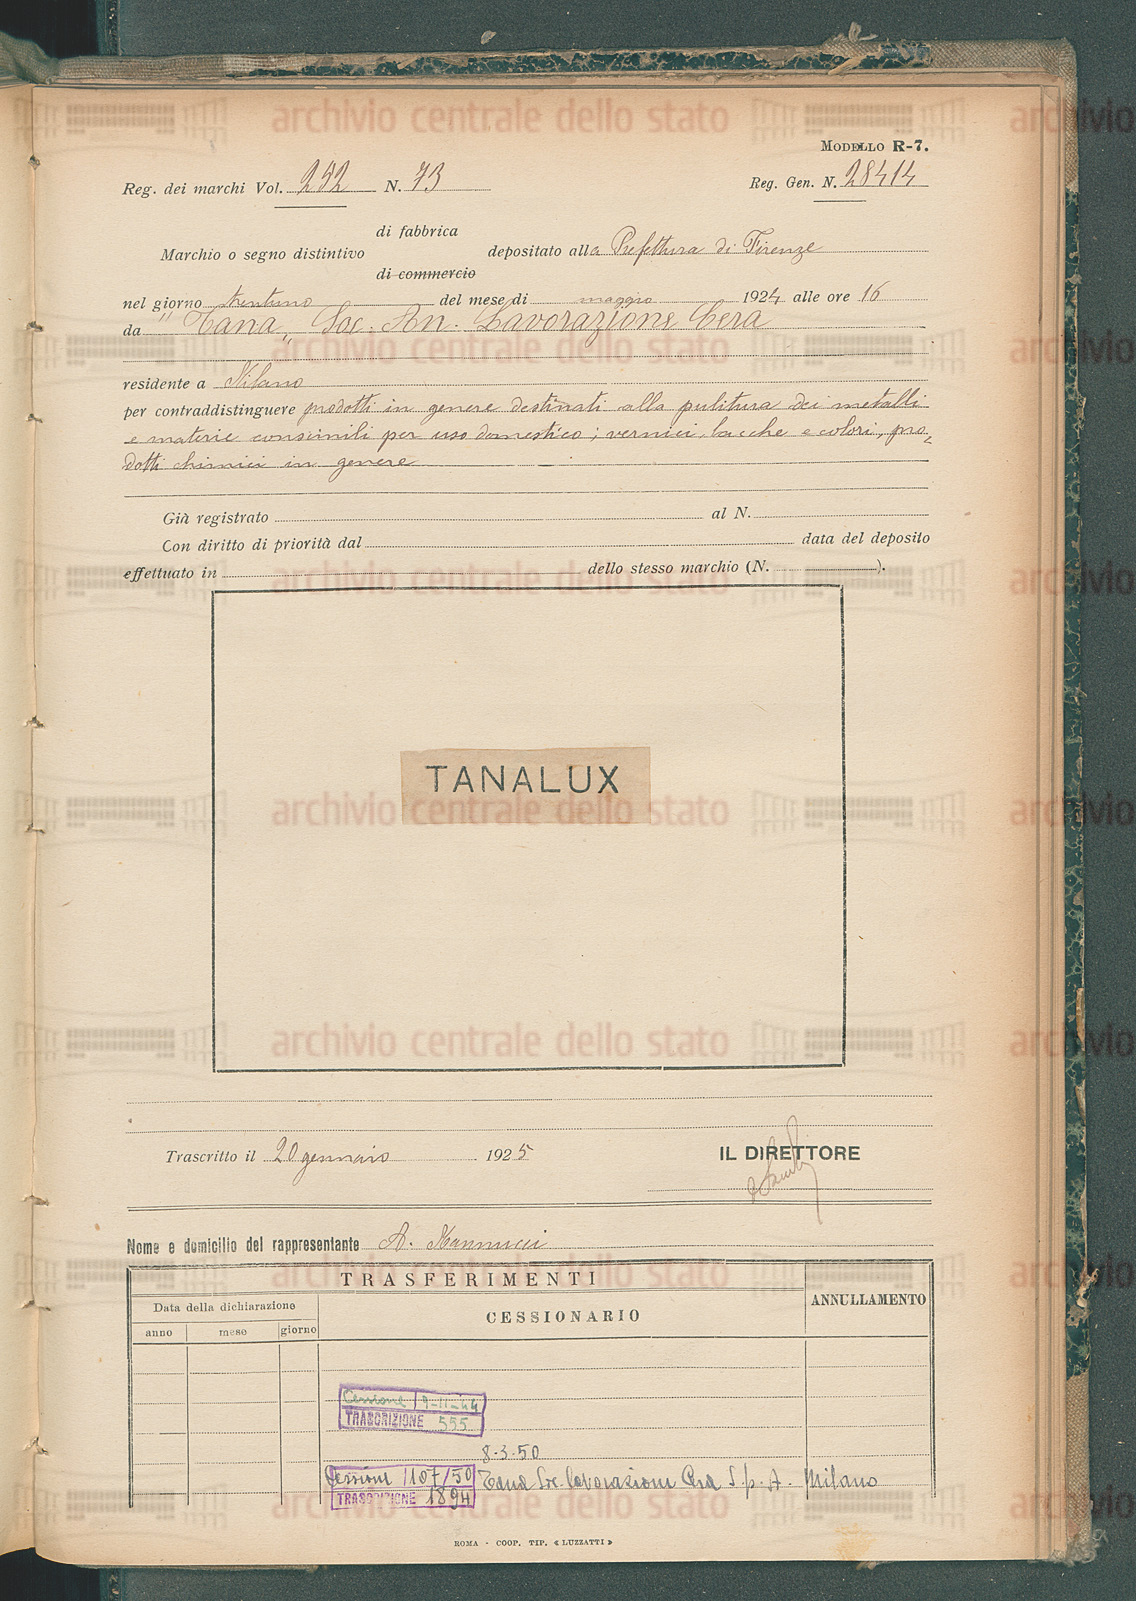 MODELLO R-7.
Reg. dei marchi Vol. 252 N. 73
Reg. Gen. N. 28414
di fabbrica
Marchio o segno distintivo depositato alla Prefettura di Firenze
di commercio
nel giorno trentuno del mese di maggio 1924 alle ore 16
da "Tana" Soc. An. Lavorazione Cera
residente a Milano
per contraddistinguere prodotti in genere destinati alla pulitura dei metalli
e materie consimili per uso domestico; vernici, lacche e colori, pro-
dotti chimici in genere
Già registrato al N.
Con diritto di priorità dal data del deposito
effettuato in dello stesso marchio (N. ).
TANALUX
Trascritto il 20 gennaio 1925
IL DIRETTORE
Nome e domicilio del rappresentante A.
TRASFERIMENTI
Data della dichiarazione
CESSIONARIO
ANNULLAMENTO
anno mese giorno
Cessione 9-11-44
TRASCRIZIONE 555
8-3-50
Cessione 1107/50 Tana Soc. lavorazione Cera S.p.A. Milano
TRASCRIZIONE 1894
ROMA - COOP. TIP. « LUZZATTI »
archivio centrale dello stato